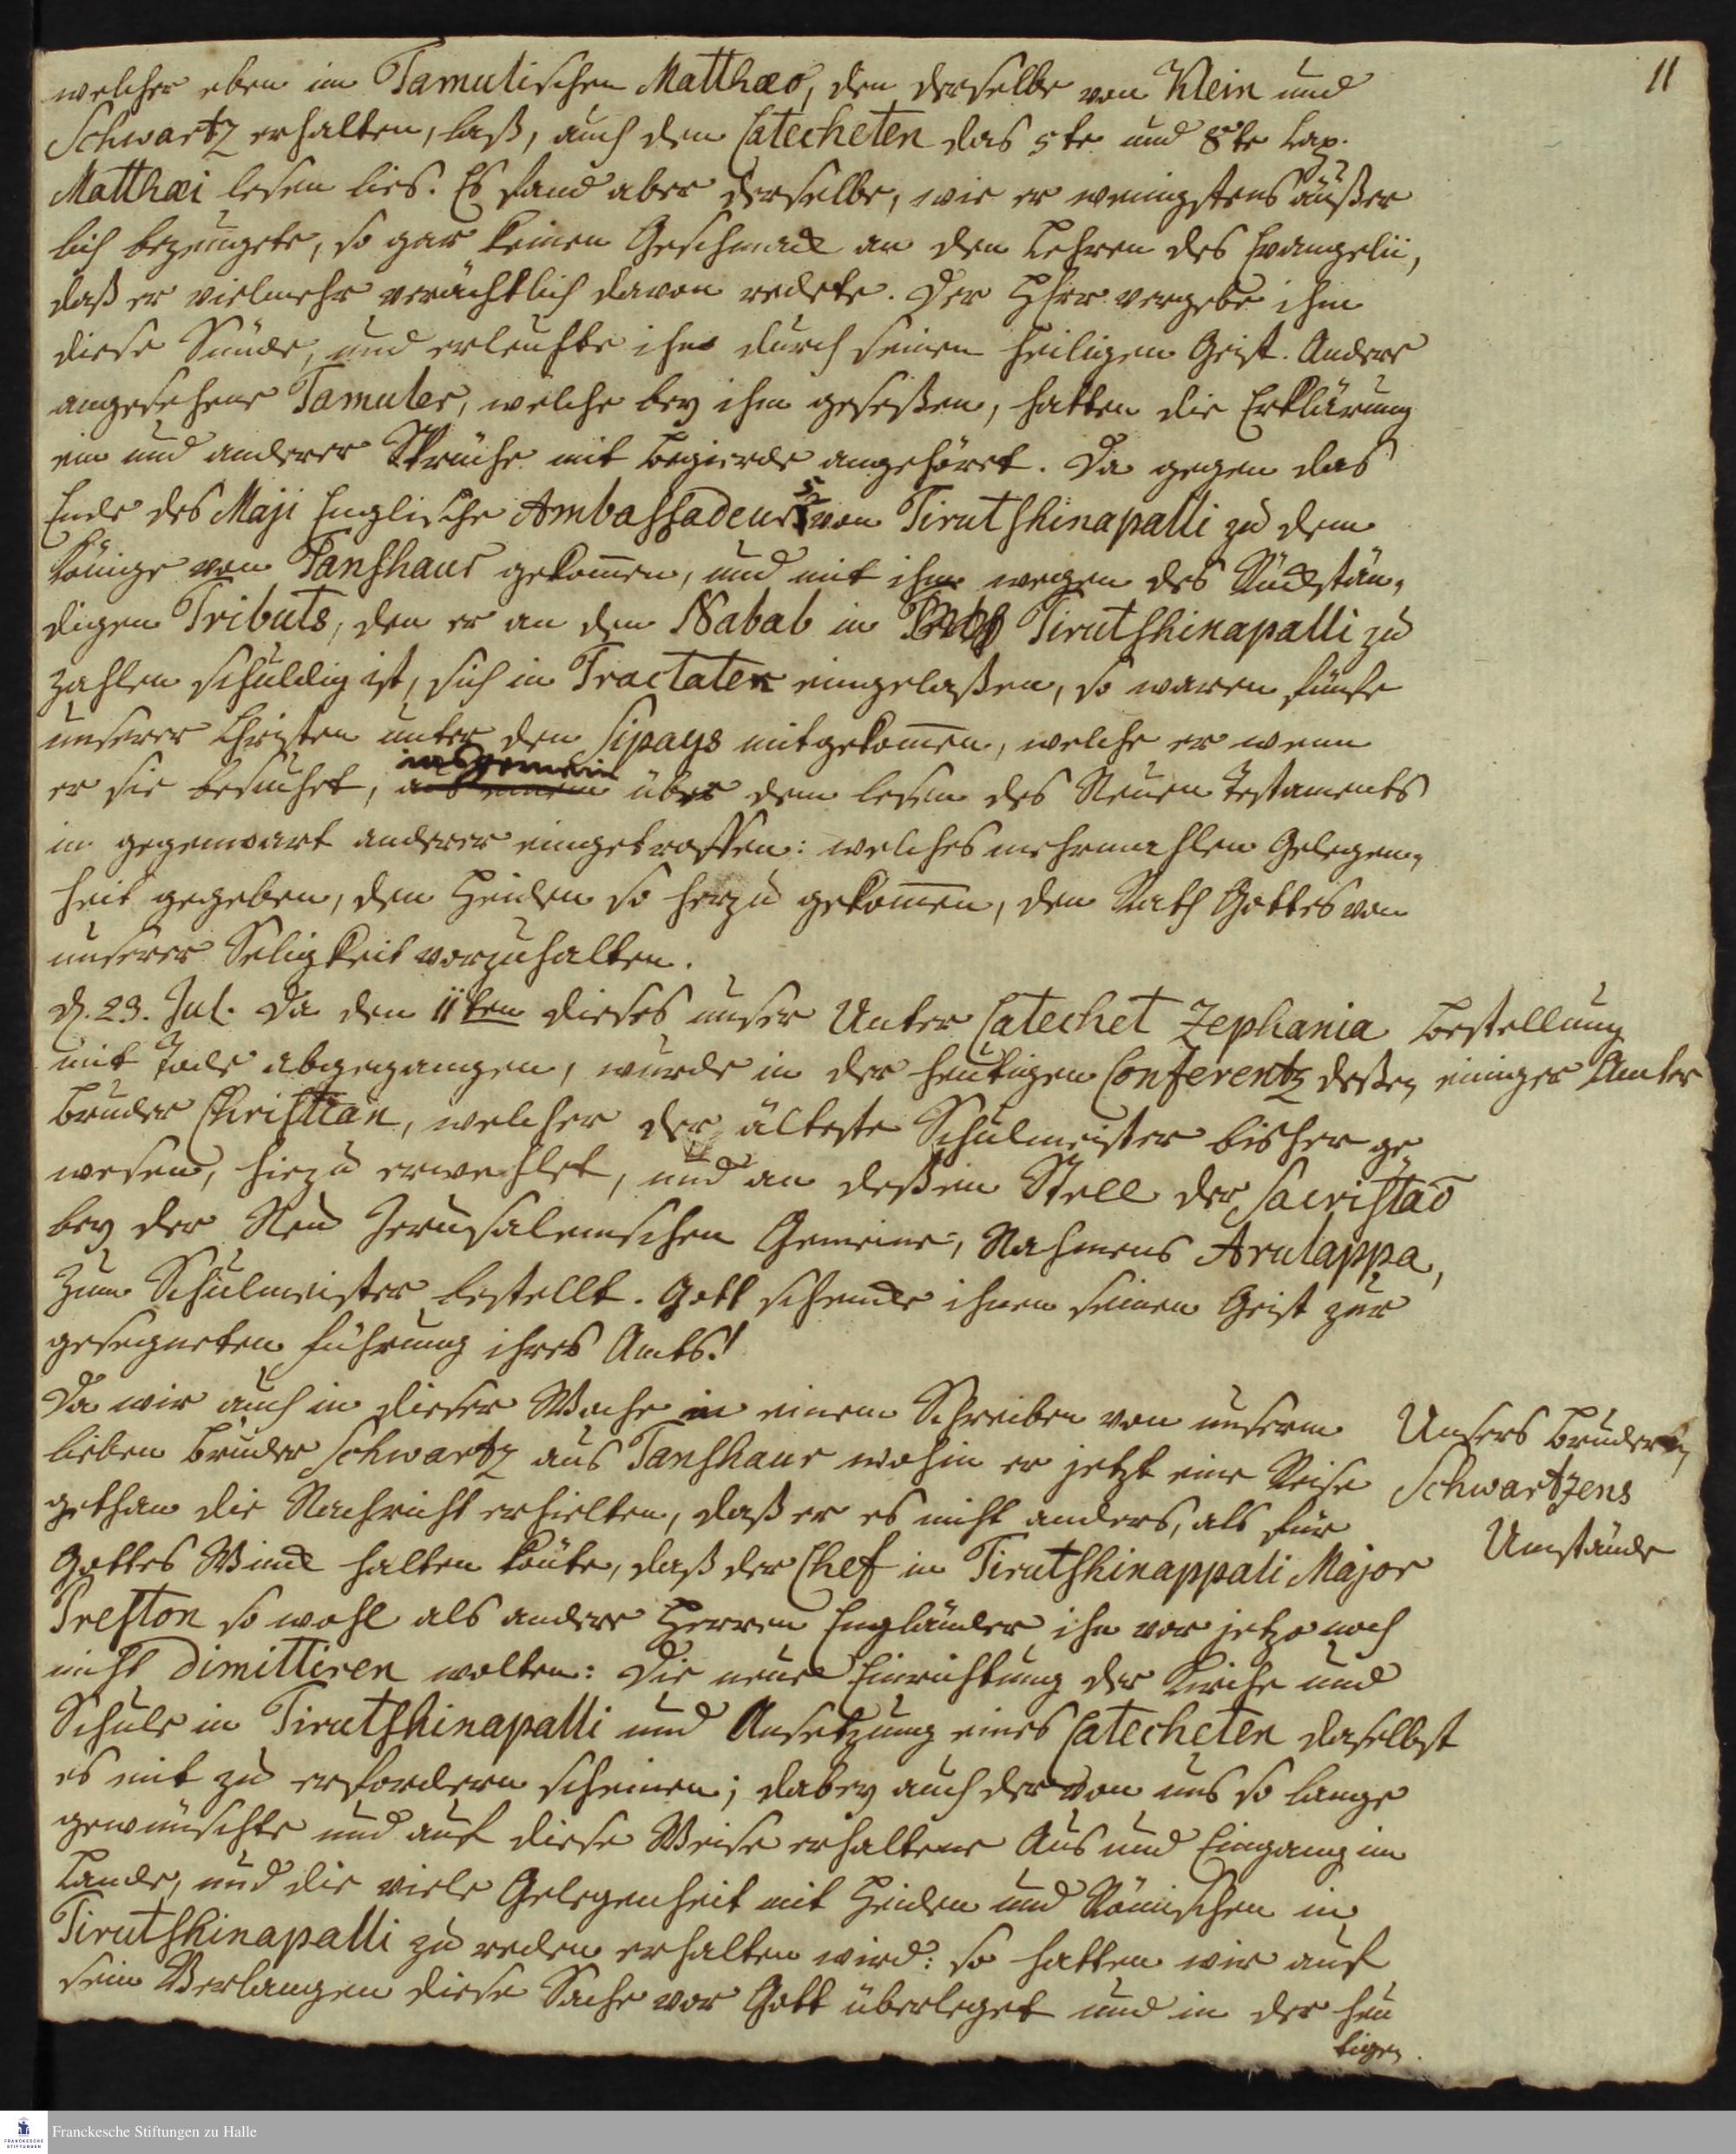 11
welcher eben im Tamulischen Matthæo, den derselbe von Klein und
Schwartz erhalten, laß, auch dem Catecheten das 5te und 8te Cap.
Matthæi lesen lies. Es fand aber derselbe, wie er wenigstens äußer
lich bezeugete, so gar keinen Geschmack an den Lehren des Evangelii,
daß er vielmehr verächtlich davon redete. Der HErr vergebe ihm
diese Sünde, und erleuchte ihn durch seinen heiligen Geist. Andere
angesehene Tamuler, welche bey ihm geseßen, hatten die Erklärung
ein und anderer Sprüche mit Begierde angehöret. Da gegen das
Ende des Maji Englische Ambassadeurs von Tirutshinapalli zu dem
Könige von Tanshaur gekom̄en, und mit ihm wegen des Rückstän-
digen Tributs, den er an den Nabab in Tirutshinapalli zu
zahlen schuldig ist, sich in Tractaten eingelaßen, so waren fünfe
unserer Christen unter den Sipays mitgekom̄en, welche er wenn
er sie besuchet, insgemein über dem lesen des Neuen Testaments
in gegenwart anderer eingetroffen: welches mehrmahlen Gelegen-
heit gegeben, den Heiden so herzu gekom̄en, den Rath Gottes von
unserer Seligkeit vorzuhalten.
d. 23. Jul. Da den 11ten dieses unser Unter Catechet Zephania
Bestellung
mit Tode abgegangen, wurde in der heutigen Conferentz deßen
einiger Ämter
Bruder Christian, welcher der älteste Schulmeister bisher ge-
wesen, hiezu erwehlet, und an deßen Stell der Sacristaõ
bey der Neu Jerusalemschen Gemeine, Nahmens Arulappa,
zum Schulmeister bestellt. Gott schencke ihnen seinen Geist zur
gesegneten führung ihres Amts!
Da wir auch in dieser Woche in einem Schreiben von unserm
Unsers Bruders
lieben Bruder Schwartz aus Tanshaur wohin er jetzt eine Reise
Schwartzens
gethan die Nachricht erhielten, daß er es nicht anders, als für
Umstände
Gottes Winck halten könte, daß der Chef in Tirutshinappali Major
Preston so wohl als andere Herren Engländer ihn vor jetzo noch
nicht dimittiren wolten: die neue Einrichtung der Kirche und
Schule in Tirutshinapalli und Ansetzung eines Catecheten daselbst
es mit zu erfordern scheinen; dabey auch der von uns so lange
gewünschte und auf diese Weise erhaltene Aus und Eingang im
Lande, und die viele Gelegenheit mit Heiden und Römischen in
Tirutshinapalli zu reden erhalten wird: so hatten wir auf
sein Verlangen diese Sache vor Gott überleget und in der heu
tigen
Franckesche Stiftungen zu Halle
FRANCKESCHE
STIFTUNGEN